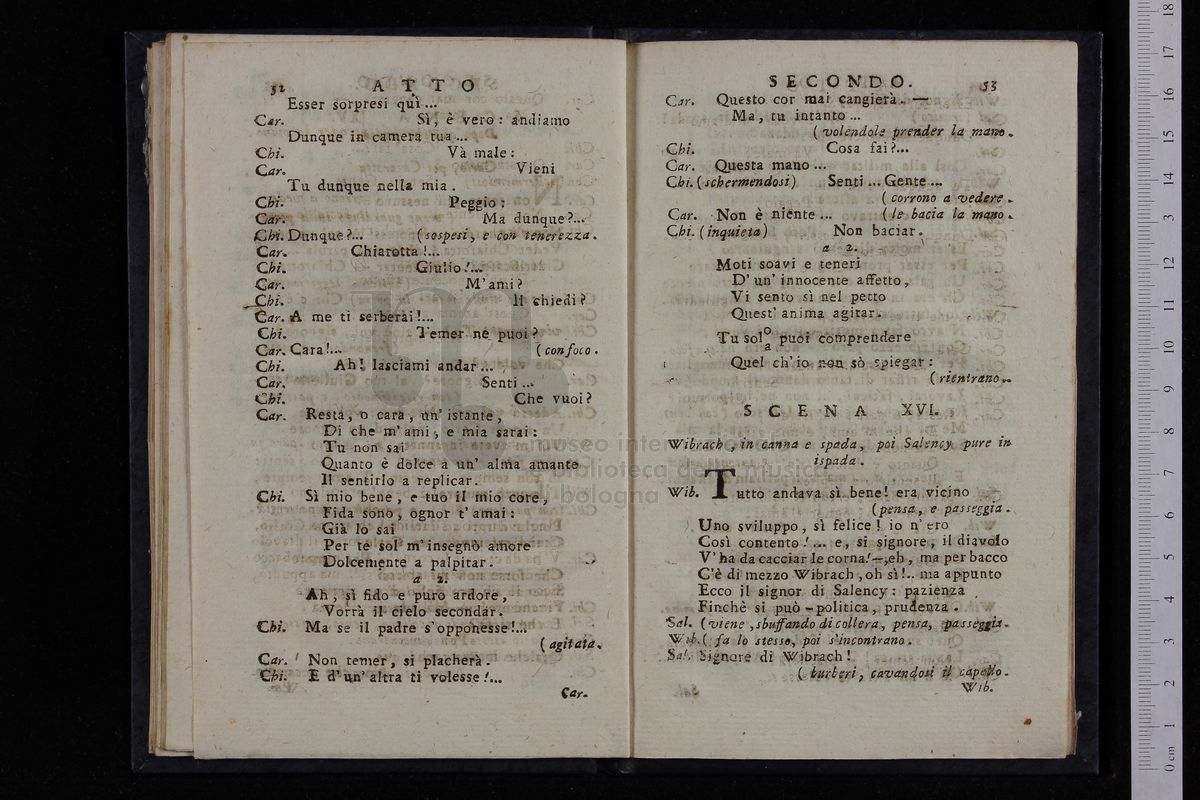 52 ATTO
Esser sorpresi quì...
Car. Sì, è vero: andiamo
Dunque in camera tua...
Chi. Và male:
Car. Vieni
Tu dunque nella mia.
Chi. Peggio:
Car. Ma dunque?...
Chi. Dunque?... (sospesi, e con tenerezza.
Car. Chiarotta!...
Chi. Giulio!...
Car. M'ami?
Chi. Il chiedi?
Car. A me ti serberai!...
Chi. Temer ne puoi?
Car. Cara!... (con foco.
Chi. Ah! lasciami andar...
Car. Senti...
Chi. Che vuoi?
Car. Resta, o cara, un'istante,
Di che m'ami, e mia sarai:
Tu non sai
Quanto è dolce a un' alma amante
Il sentirlo a replicar.
Chi. Sì mio bene, e tuo il mio core,
Fida sono, ognor t'amai:
Già lo sai
Per te sol m'insegnò amore
Dolcemente a palpitar.
a 2.
Ah, sì fido e puro ardore,
Vorrà il cielo secondar.
Chi. Ma se il padre s'opponesse!...
(agitata.
Car. Non temer, si placherà.
Chi. E d'un'altra ti volesse!...
Car.
SECONDO. 53
Car. Questo cor mai cangierà. —
Ma, tu intanto...
(volendole prender la mano.
Chi. Cosa fai?...
Car. Questa mano...
Chi. (schermendosi) Senti... Gente...
(corrono a vedere.
Car. Non è niente... (le bacia la mano.
Chi. (inquieta) Non baciar.
a 2.
Moti soavi e teneri
D'un'innocente affetto,
Vi sento sì nel petto
Quest'anima agitar.
Tu sol o/a puoi comprendere
Quel ch'io non sò spiegar:
(rientrano.
SCENA XVI.
Wibrach, in canna e spada, poi Salency pure in
ispada.
Wib. Tutto andava sì bene! era vicino
(pensa, e passeggia.
Uno sviluppo, sì felice! io n'ero
Così contento!... e, si signore, il diavolo
V'ha da cacciar le corna!—eh, ma per bacco
C'è di mezzo Wibrach, oh sì!.. ma appunto
Ecco il signor di Salency: pazienza
Finchè si può - politica, prudenza.
Sal. (viene, sbuffando di collera, pensa, passeggia.
Wib. (fa lo stesso, poi s'incontrano.
Sal. Signore di Wibrach!
(burberi, cavandosi il capello.
Wib.
museo
biblioteca della musica
bologna
0 cm 1 2 3 4 5 6 7 8 9 10 11 12 13 14 15 16 17 18